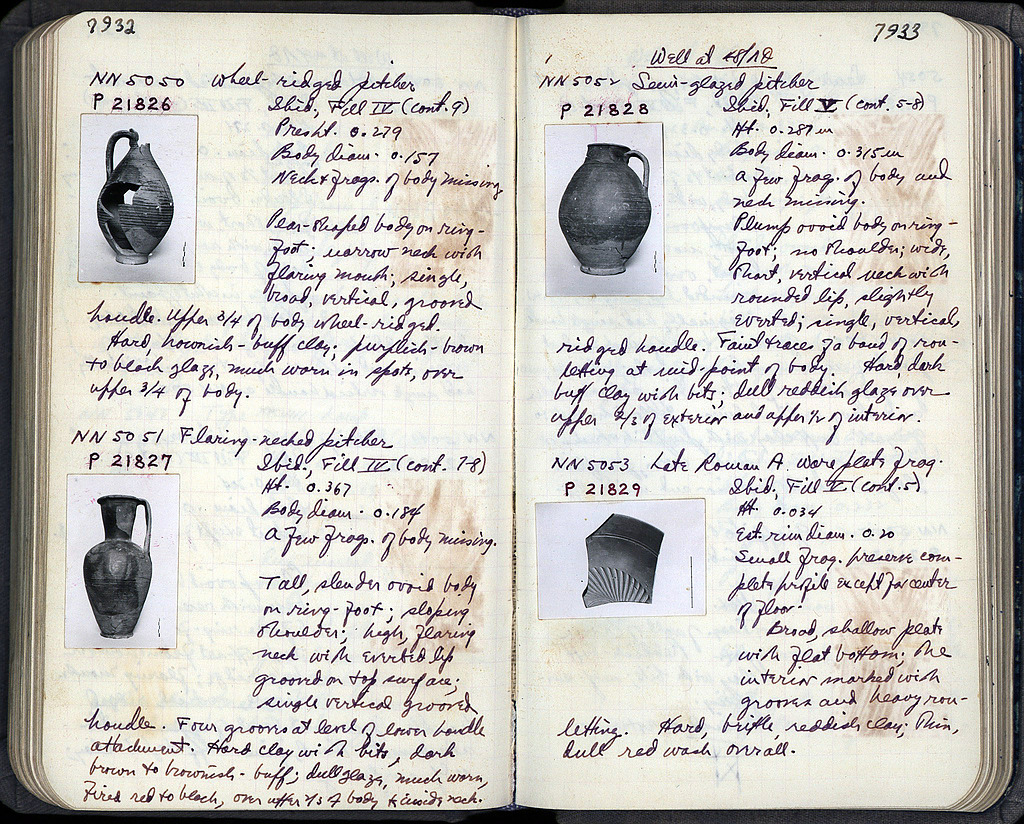 7932
NN 5050 Wheel-ridged pitcher
P 21826 Ibid, Fill IV (cont. 9)
Presht. 0.279
Body diam. 0.157
Neck & frags. of body missing.
Pear-shaped body on ring-
foot; narrow neck with
flaring mouth; single,
broad, vertical, grooved
handle. Upper 3/4 of body wheel-ridged.
Hard, brownish-buff clay; purplish-brown
to black glaze, much worn in spots, over
upper 3/4 of body.
NN 5051 Flaring-necked pitcher
P 21827 Ibid, Fill IV (cont. 7-8)
Ht. 0.367
Body diam. 0.184
A few frags. of body missing.
Tall, slender ovoid body
on ring-foot; sloping
shoulder; high, flaring
neck with everted lip
grooved on top surface;
single vertical grooved
handle. Four grooves at level of lower handle
attachment. Hard clay with bits, dark
brown to brownish-buff; dull glaze, much worn,
fired red to black, over upper 2/3 of body & inside neck.
7933
Well at
NN 5052 Semi-glazed pitcher
P 21828 Ibid, Fill V (cont. 5-8)
Ht. 0.287 m
Body diam. 0.315 m
A few frags. of body and
neck missing.
Plump ovoid body on ring-
foot; no shoulder; wide,
short, vertical neck with
rounded lip, slightly
everted; single, vertical,
ridged handle. Faint traces of a band of rou-
letting at mid-point of body. Hard, dark
buff clay with bits; dull reddish glaze over
upper 2/3 of exterior and upper 1/2 of interior.
NN 5053 Late Roman A. ware plate frag.
P 21829 Ibid, Fill V (cont. 5)
Ht. 0.034
Est. rim diam. 0.20
Small frag. preserve com-
plete profile except for center
of floor.
Broad, shallow plate
with flat bottom; the
interior marked with
grooves and heavy rou-
letting. Hard, brittle, reddish clay; thin,
dull red wash overall.